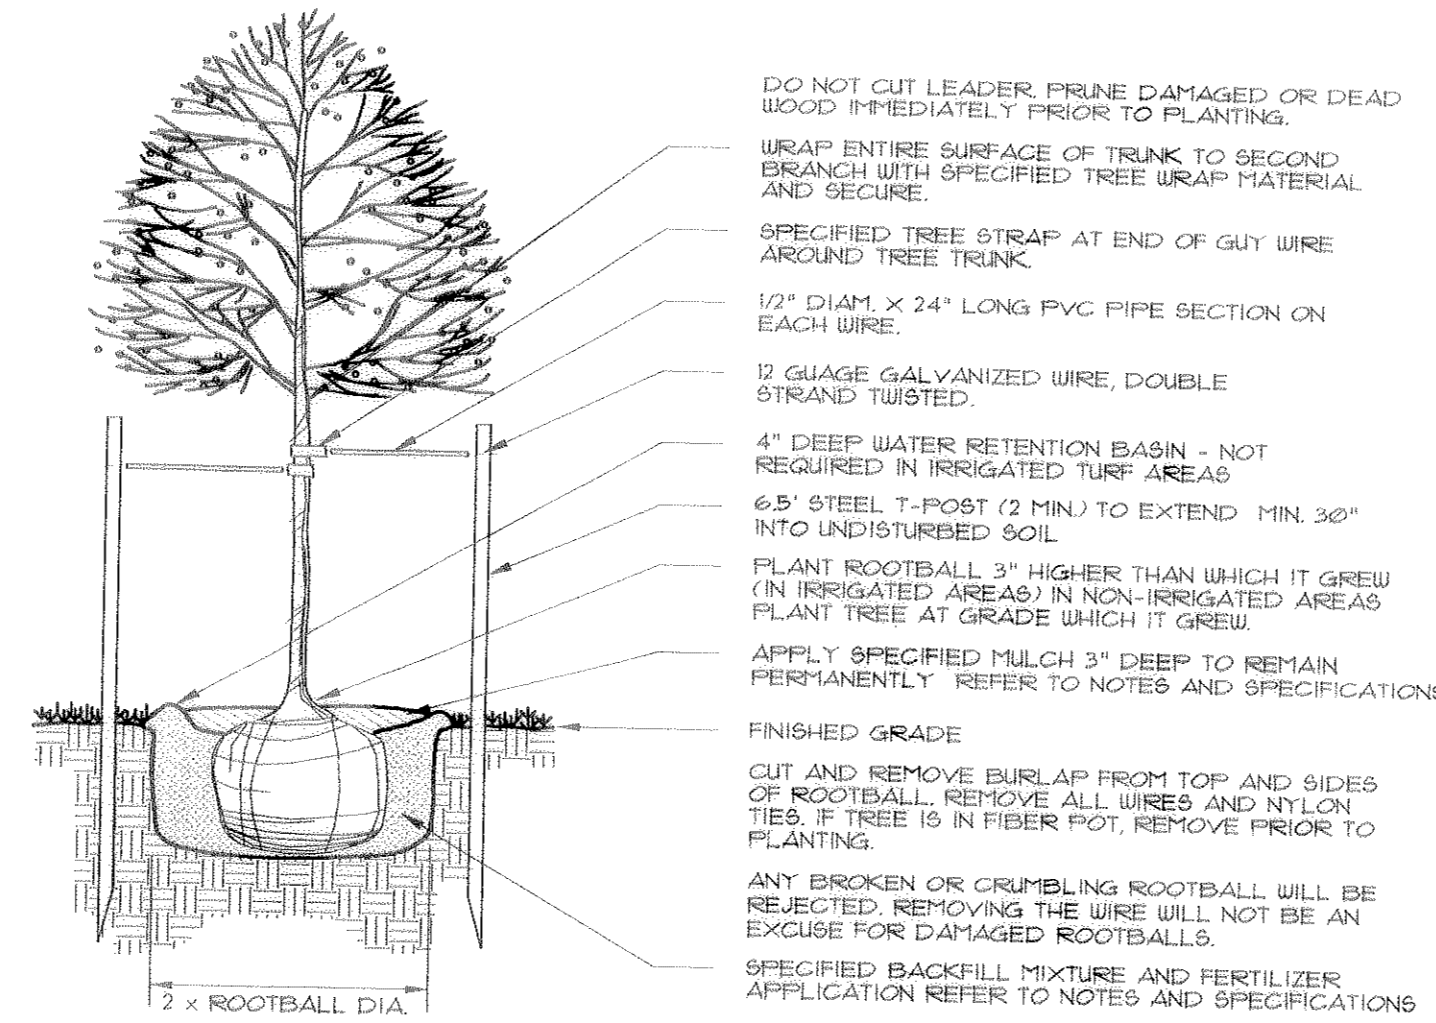 DO NOT CUT LEADER. PRUNE DAMAGED OR DEAD
WOOD IMMEDIATELY PRIOR TO PLANTING.
WRAP ENTIRE SURFACE OF TRUNK TO SECOND
BRANCH WITH SPECIFIED TREE WRAP MATERIAL
AND SECURE.
SPECIFIED TREE STRAP AT END OF GUY WIRE
AROUND TREE TRUNK.
1/2" DIAM. X 24" LONG PVC PIPE SECTION ON
EACH WIRE.
12 GUAGE GALVANIZED WIRE, DOUBLE
STRAND TWISTED.
4" DEEP WATER RETENTION BASIN - NOT
REQUIRED IN IRRIGATED TURF AREAS
6.5' STEEL T-POST (2 MIN.) TO EXTEND MIN. 30"
INTO UNDISTURBED SOIL
PLANT ROOTBALL 3" HIGHER THAN WHICH IT GREW
(IN IRRIGATED AREAS) IN NON-IRRIGATED AREAS
PLANT TREE AT GRADE WHICH IT GREW.
APPLY SPECIFIED MULCH 3" DEEP TO REMAIN
PERMANENTLY REFER TO NOTES AND SPECIFICATIONS
FINISHED GRADE
CUT AND REMOVE BURLAP FROM TOP AND SIDES
OF ROOTBALL. REMOVE ALL WIRES AND NYLON
TIES. IF TREE IS IN FIBER POT, REMOVE PRIOR TO
PLANTING.
ANY BROKEN OR CRUMBLING ROOTBALL WILL BE
REJECTED. REMOVING THE WIRE WILL NOT BE AN
EXCUSE FOR DAMAGED ROOTBALLS.
SPECIFIED BACKFILL MIXTURE AND FERTILIZER
APPLICATION REFER TO NOTES AND SPECIFICATIONS
2 x ROOTBALL DIA.